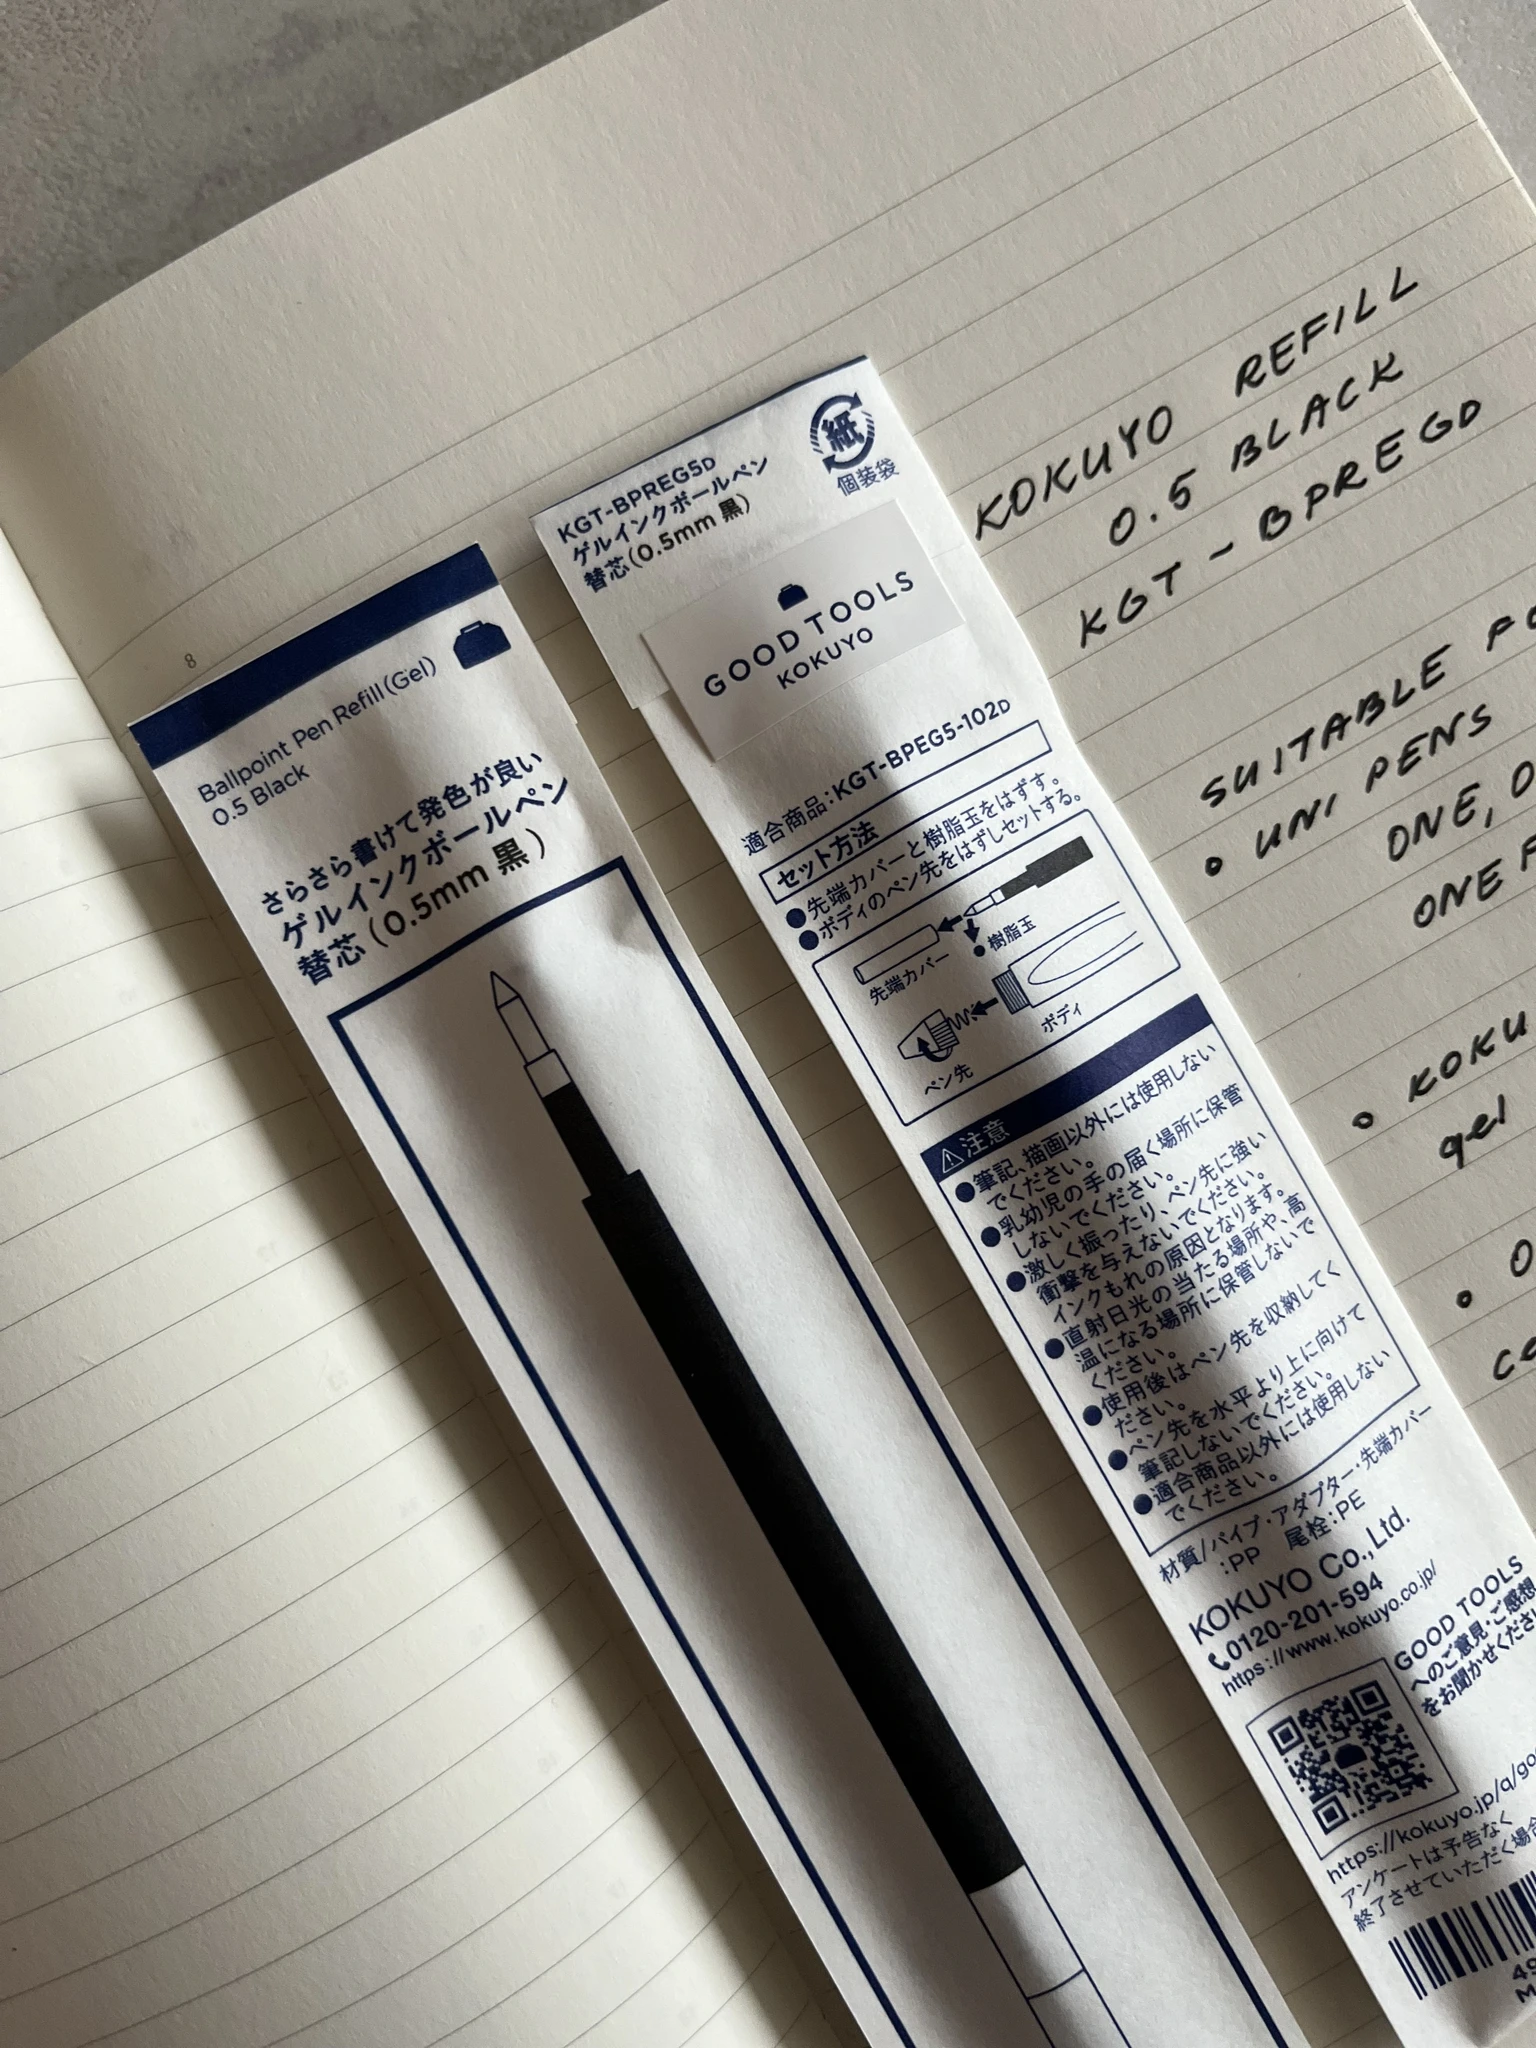 8
Ballpoint Pen Refill (Gel)
0.5 Black
さらさら書けて発色が良い
ゲルインクボールペン
替芯(0.5mm 黒)
KGT-BPREG5D
ゲルインクボールペン
替芯(0.5mm 黒)
紙
個装袋
GOOD TOOLS
KOKUYO
適合商品:KGT-BPEG5-102D
セット方法
●先端カバーと樹脂玉をはずす。
●ボディのペン先をはずしセットする。
先端カバー
樹脂玉
ペン先
ボディ
⚠注意
●筆記、描画以外には使用しない
でください。
●乳幼児の手の届く場所に保管
しないでください。
●激しく振ったり、ペン先に強い
衝撃を与えないでください。
インクもれの原因となります。
●直射日光の当たる場所や、高
温になる場所に保管しないで
ください。
●使用後はペン先を収納してく
ださい。
●ペン先を水平より上に向けて
筆記しないでください。
●適合商品以外には使用しない
でください。
材質/パイプ・アダプター・先端カバー
:PP 尾栓:PE
KOKUYO Co.,Ltd.
0120-201-594
https://www.kokuyo.co.jp/
GOOD TOOLS
へのご意見・ご感想
をお聞かせくださ
https://kokuyo.jp/q/go
アンケートは予告なく
終了させていただく場合
49
KOKUYO REFILL
0.5 BLACK
KGT-BPREGD
SUITABLE FO
• UNI PENS
ONE, O
ONE F
• KOKU
gel
• O